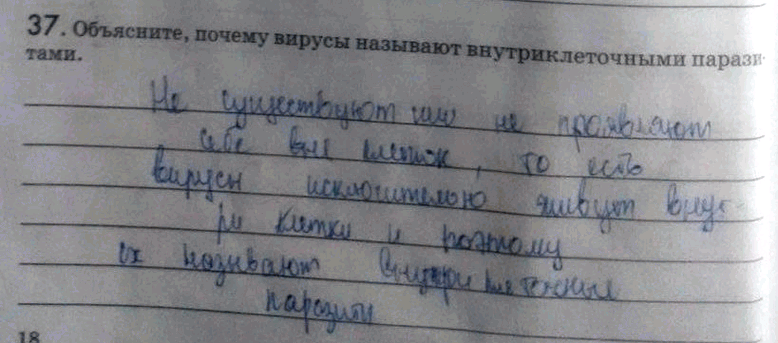 37. Объясните, почему вирусы называют внутриклеточными парази-
тами.
Не существуют или не проявляют
себе вне клеток, то есть
вирусы исключительно живут внут-
ри клетки и поэтому
их называют внутриклеточный
паразиты
18